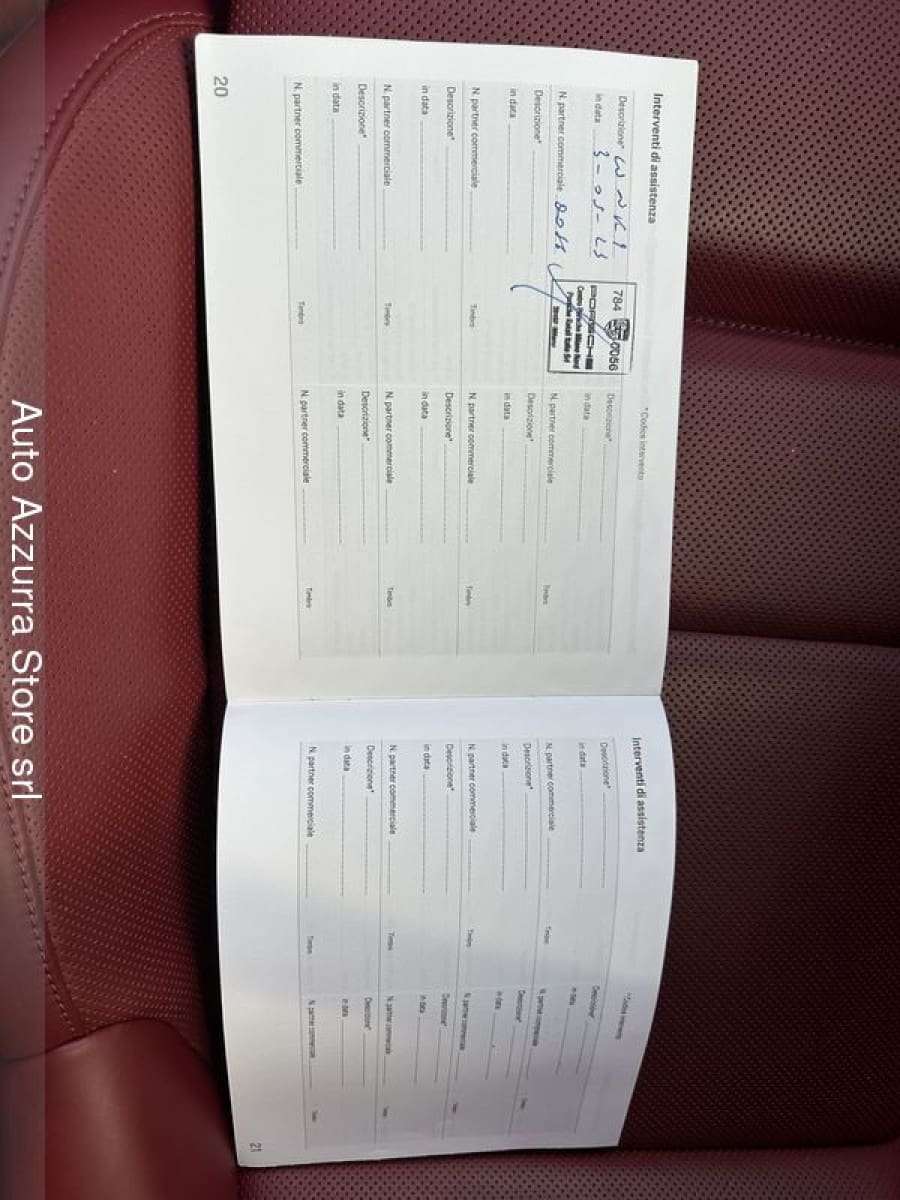 Interventi di assistenza
* Codice intervento
Descrizione* WNK1
in data
N. partner commerciale
784 0056
PORSCHE
Centro Porsche Milano Nord
Porsche Retail Italia Srl
Descrizione*
in data
N. partner commerciale
Timbro
Descrizione*
in data
N. partner commerciale
Timbro
Descrizione*
in data
N. partner commerciale
Timbro
Descrizione*
in data
N. partner commerciale
Timbro
Descrizione*
in data
N. partner commerciale
Timbro
Descrizione*
in data
N. partner commerciale
Timbro
Descrizione*
in data
N. partner commerciale
Timbro
20
Interventi di assistenza
*Codice intervento
Descrizione*
in data
N. partner commerciale
Timbro
Descrizione*
in data
N. partner commerciale
Timbro
Descrizione*
in data
N. partner commerciale
Timbro
Descrizione*
in data
N. partner commerciale
Timbro
Descrizione*
in data
N. partner commerciale
Timbro
Descrizione*
in data
N. partner commerciale
Timbro
Descrizione*
in data
N. partner commerciale
Timbro
Descrizione*
in data
N. partner commerciale
Timbro
21
Auto Azzurra Store srl